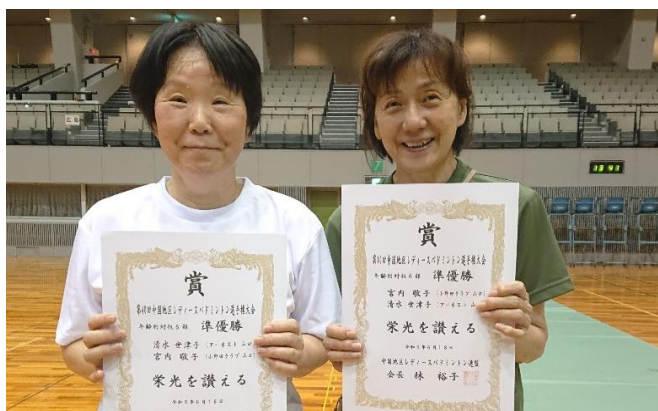 賞
第40回中国地区レディースバドミントン選手権大会
年齢別対抗6部 準優勝
清水 世津子
宮内 敬子 (小野田クラブ 山口)
栄光を讃える
賞
第40回中国地区レディースバドミントン選手権大会
年齢別対抗6部 準優勝
宮内 敬子 (小野田クラブ 山口)
清水 世津子
栄光を讃える
中国地区レディースバドミントン連盟
会長 林 裕子